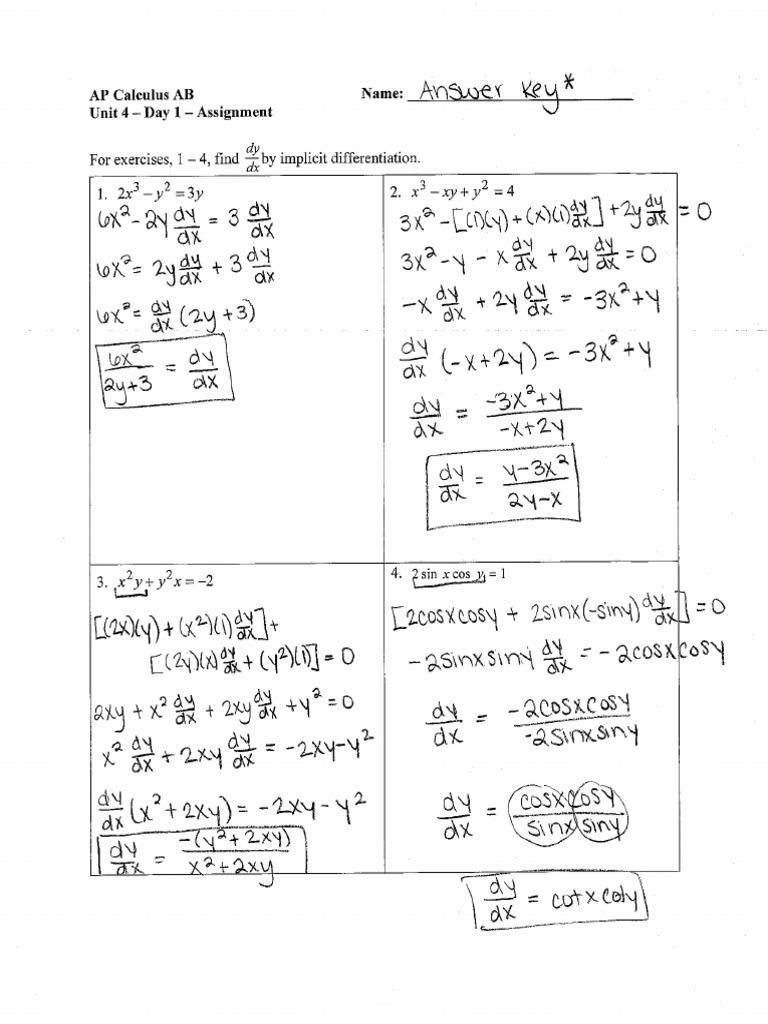 AP Calculus AB Name: Answer Key*
Unit 4 – Day 1 – Assignment
For exercises, 1 – 4, find dy/dx by implicit differentiation.
1. 2x³ – y² = 3y
6x² - 2y dy/dx = 3 dy/dx
6x² = 2y dy/dx + 3 dy/dx
6x² = dy/dx (2y + 3)
6x²/2y+3 = dy/dx
2. x³ – xy + y² = 4
3x² - [(1)(y) + (x)(1)dy/dx] + 2y dy/dx = 0
3x² - y - x dy/dx + 2y dy/dx = 0
-x dy/dx + 2y dy/dx = -3x² + y
dy/dx (-x + 2y) = -3x² + y
dy/dx = -3x² + y/-x + 2y
dy/dx = y - 3x²/2y - x
3. x²y + y²x = –2
[(2x)(y) + (x²)(1)dy/dx] +
[(2y)(x)dy/dx + (y²)(1)] = 0
2xy + x² dy/dx + 2xy dy/dx + y² = 0
x² dy/dx + 2xy dy/dx = -2xy - y²
dy/dx (x² + 2xy) = -2xy - y²
dy/dx = -(y² + 2xy)/x² + 2xy
4. 2 sin x cos y = 1
[2cosxcosy + 2sinx(-siny) dy/dx] = 0
-2sinxsiny dy/dx = -2cosxcosy
dy/dx = -2cosxcosy/-2sinxsiny
dy/dx = cosxcosy/sinxsiny
dy/dx = cotxcoty